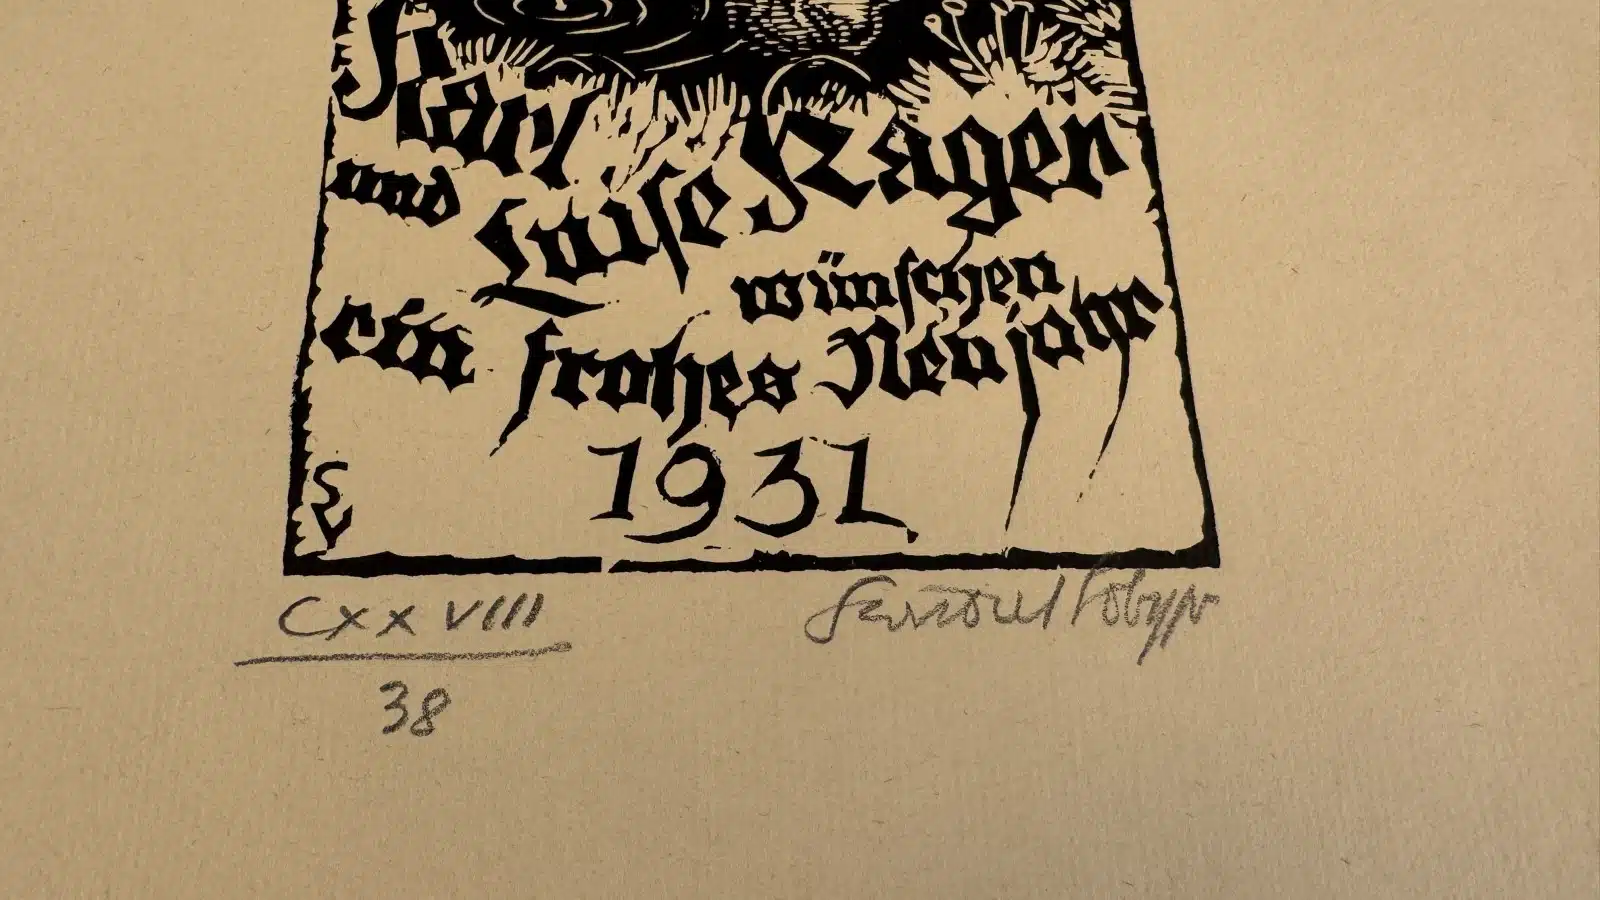 Karl
und Luise Rager
wünschen
ein frohes Neujahr
1931
SV
CXXVIII
38